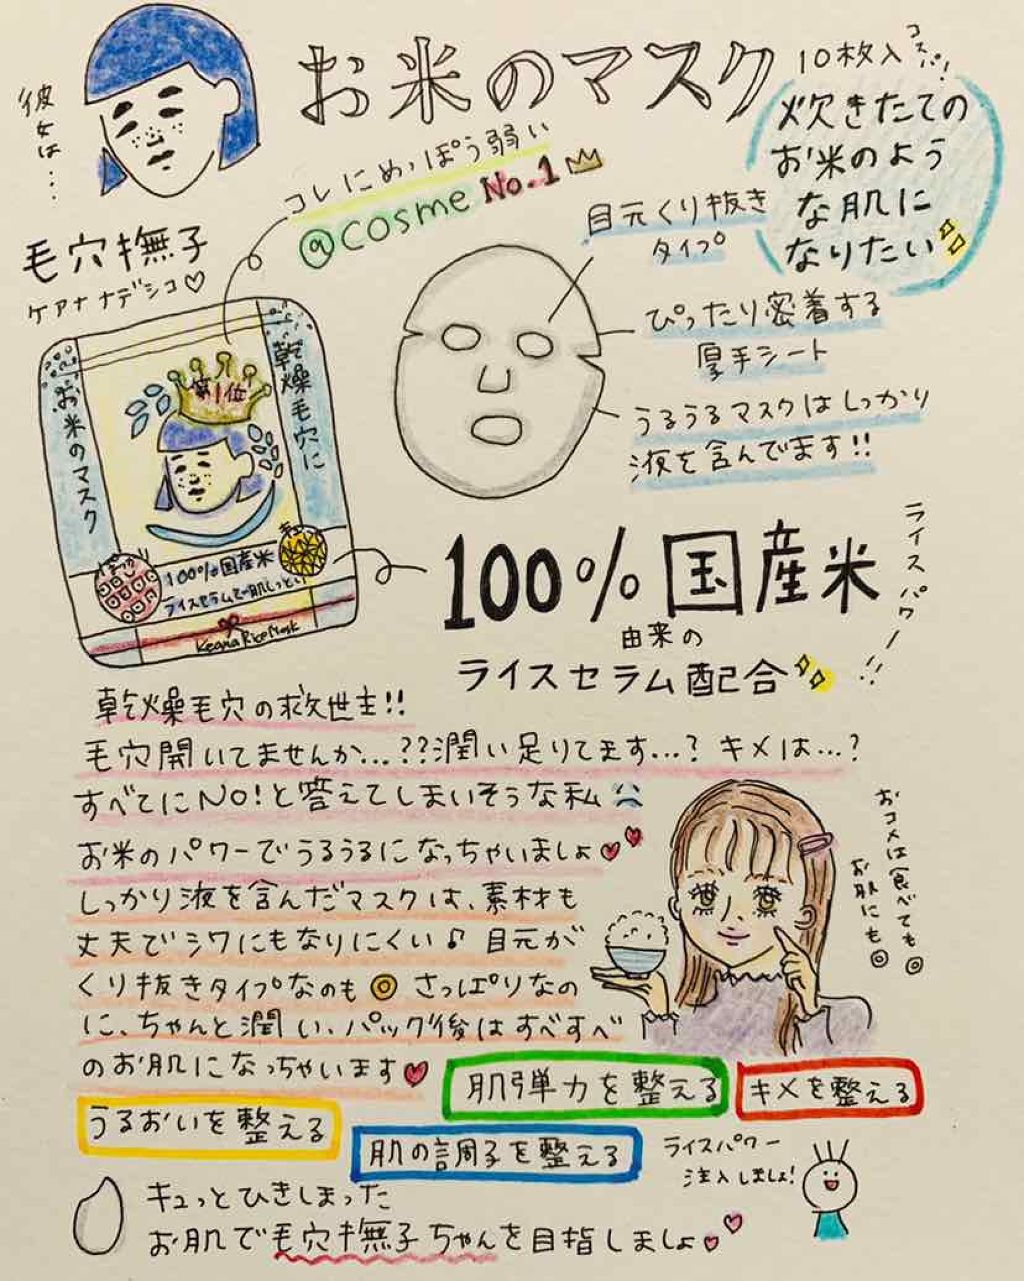 彼女は...
お米のマスク
10枚入
コスパ!
炊きたての
お米のよう
な肌に
なりたい
コレにめっぽう弱い
@cosme No.1
毛穴撫子
ケアナナデシコ♡
目元くり抜き
タイプ
ぴったり密着する
厚手シート
うるうるマスクはしっかり
液を含んでます!!
お米のマスク
第1位
乾燥毛穴に
100%国産米
ライスセラムで肌しっとり
Keana Rice Mask
100%国産米
由来の
ライスセラム配合
ライスパワー!!
乾燥毛穴の救世主!!
毛穴開いてませんか...??潤い足りてます...? キメは...?
すべてにNO!と答えてしまいそうな私
お米のパワーでうるうるになっちゃいましょ♥♥
しっかり液を含んだマスクは、素材も
丈夫でシワにもなりにくい♪ 目元が
くり抜きタイプなのも◎ さっぱりなの
に、ちゃんと潤い、パック後はすべすべ
のお肌になっちゃいます♥
おコメは食べても◎
お肌にも◎
肌弾力を整える
キメを整える
うるおいを整える
肌の調子を整える
ライスパワー
注入しましょ!
キュッとひきしまった
お肌で毛穴撫子ちゃんを目指しましょ♥♥